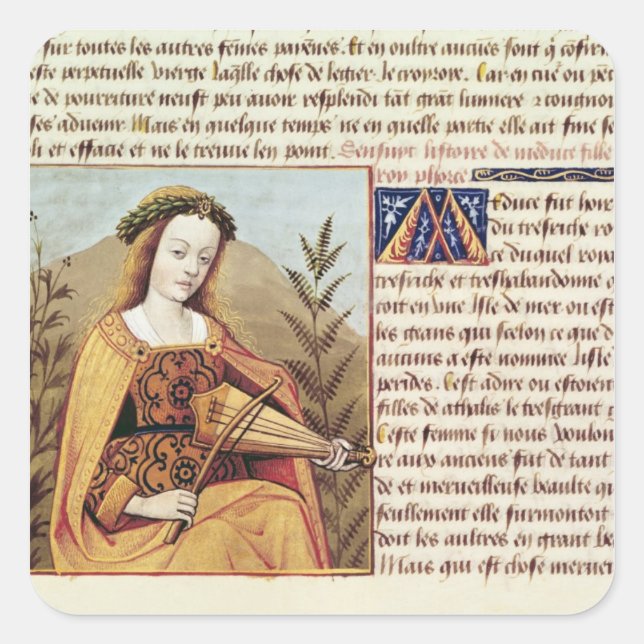 sur toutes les autres femes parvenues. Et en oultre aucues sont q
este perpetuelle vierge laqlle chose de legier Je croyroie. Car en ou
e de pourriture neust peu avoir resplendi tat grat lumiere
ses advenir. Mais en quelque temps ne en quelle partie elle ait fine se
li et effacie et ne le treuve len point. Sensuyt listoire de meduce fille
roy phorce
Meduce fut
du tresriche ro
ce duquel
tresriche et treshabandonne
en une Isle de mer ou est
les geans qui scelon ce que d
aucuns a este nommee lisle
perides. Cest a dire ou estoient
filles de athalis le tresgrant g
Ceste femme si nous voulon
re aux anciens fut de tant
de et merveilleuse beaulte qu
seullement elle surmontoit
doit les aultres en grant be
Mais qui est chose merver